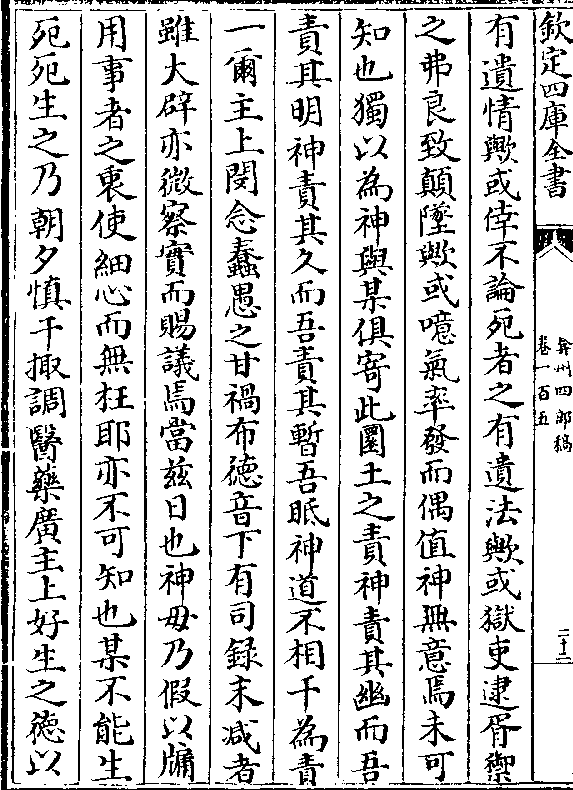 欽定四庫全書
弇州四部稿
卷一百五
二十二
有遺情歟或倖不論死者之有遺法歟或獄吏逮胥禦
之弗良致顛墜歟或噫氣率發而偶值神無意焉未可
知也獨以為神與某俱寄此圜土之責神責其幽而吾
責其明神責其久而吾責其暫吾眡神道不相干為責
一爾主上閔念蠢愚之甘禍布德音下有司錄末減者
雖大辟亦微察實而賜議焉當茲日也神毋乃假以牖
用事者之衷使細心而無枉耶亦不可知也某不能生
死死生之乃朝夕慎干掫調醫藥廣主上好生之德以